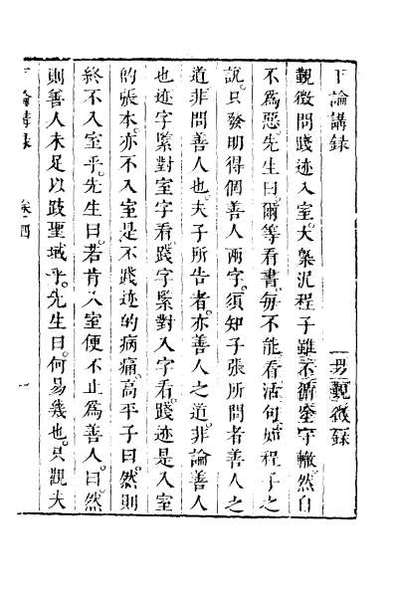 下論講錄　男覲徵錄
覲徵問踐迹入室大槩泥程子雖不循塗守轍然自
不為惡先生曰爾等看書每不能看活句如程子之
說只發明得個善人兩字須知子張所問者善人之
道非問善人也夫子所告者亦善人之道非論善人
也迹字緊對室字看踐字緊對入字看踐迹是入室
的張本亦不入室是不踐迹的病痛高平子曰然則
終不入室乎先生曰若肯入室便不止為善人曰然
則善人未足以跂聖域乎先生曰何易幾也只觀夫
下論講錄　卷十四